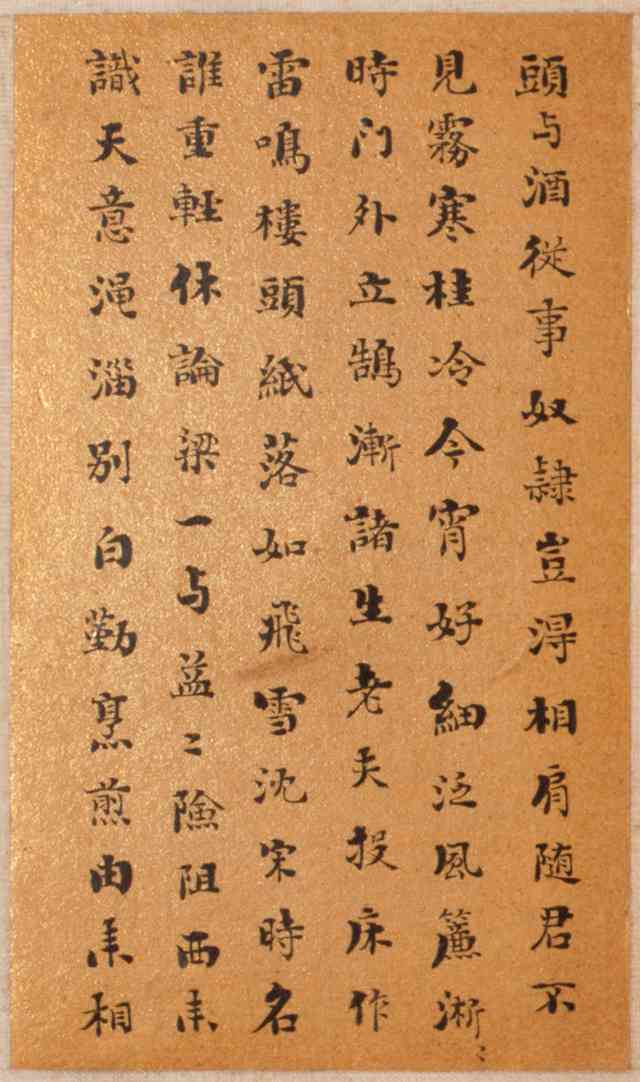 頭与酒從事奴隸豈淂相肩随君不
見霧寒桂冷今宵好細泛風簾淅〻
時门外立鵠漸諸生老夫投床作
雷鳴樓頭紙落如飛雪沈宋時名
誰重輕休論梁一与益二險阻西来
識天意渑淄別白勤烹煎由来相